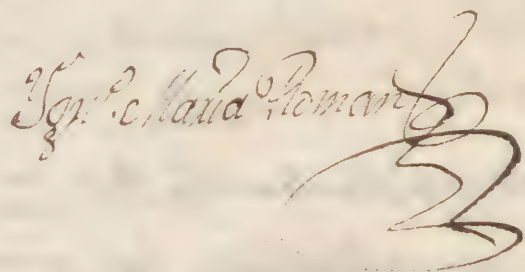 Ygn.º Maria Roman